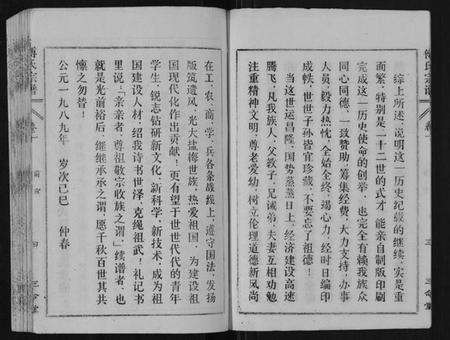 综上所述，说明这一历史纪载的继续，实是重
而繁，特别是一二十二世的式才，能亲自制版印刷
完成这一历史使命的创举，也完全有赖我族众
同心同德，一致赞助，筹集经费，大力支持，办事
人员，毅力热忱，全始全终，竭心力，经时日编印
成帙，世世子孙皆宜珍藏，不要忘了祖德！
当这世运昌隆，国势蒸蒸日上，经济建设高速
腾飞，凡我族人，父教子，兄诫弟，夫妻互相劝勉
注重精神文明；尊老爱幼，树立伦理道德新风尚
在工、农、商、学、兵各条战线上，遵守国法，发扬
版筑遗风，光大盐梅世族，热爱祖国，为建设祖
国现代化作出贡献！更有望于世世代代的青年
学生，锐志钻研新文化，新科学，新技术，成为祖
国建设人材，绍我诗书世泽，克绳祖武，礼记书
里说：「亲亲者，尊祖敬宗收族之谓」续谱者，也
就是光前裕后，继继承承之谓，愿千秋百世其共
懔之勿替！
公元一九八九年 岁次己巳 仲春
傅氏宗谱
卷